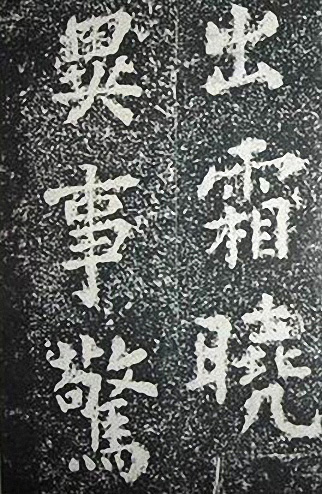 出霜曉
異事驚